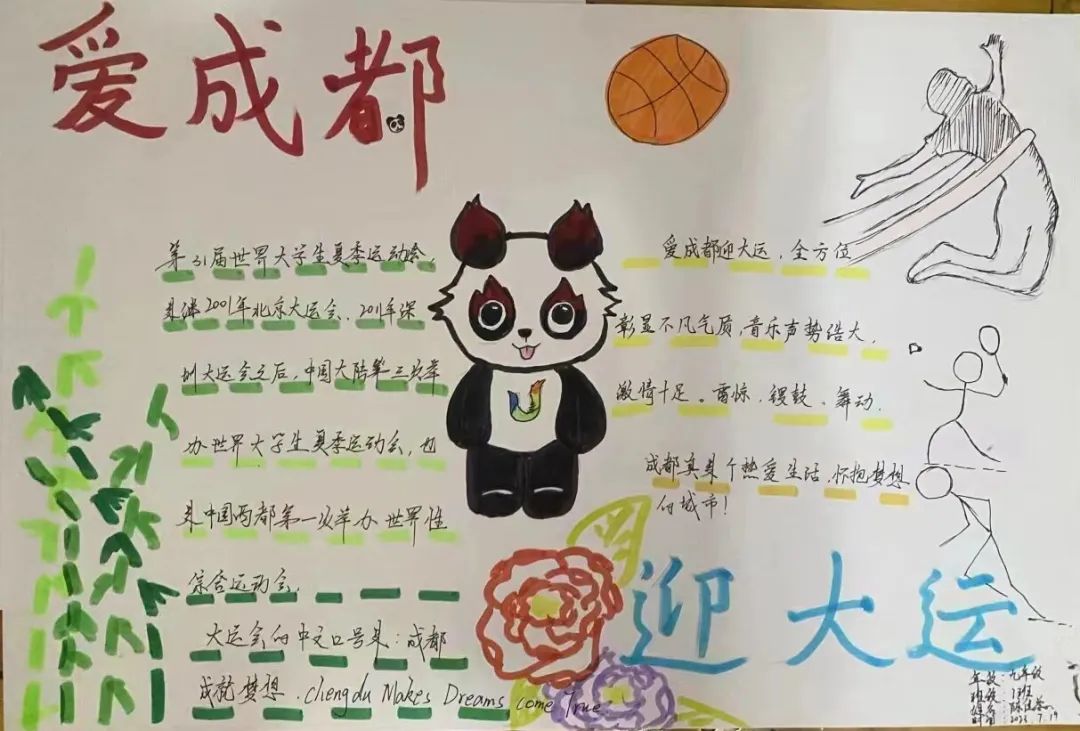 爱成都
第31届世界大学生夏季运动会，
是继2001年北京大运会、2011年深
圳大运会之后，中国大陆第三次举
办世界大学生夏季运动会，也
是中国西部第一次举办世界性
综合运动会。
大运会的中文口号是：成都
成就梦想．Chengdu Makes Dreams come True
爱成都迎大运，全方位
彰显不凡气质，音乐声势浩大，
激情十足。雷惊，锣鼓、舞动．
成都真是个热爱生活，怀抱梦想
的城市！
迎大运
年级：九年级
班级：1班
姓名：陈
时间：2023.7.19